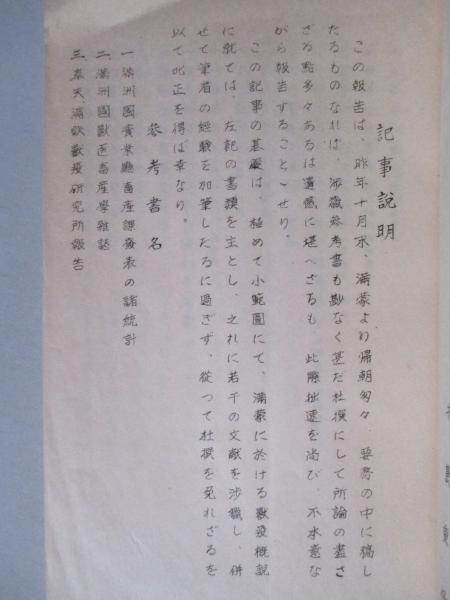 記事説明
この報告は、昨年十月末、満蒙より帰朝匆々、要務の中に稿し
たるものなれば、渉猟参考書も尠なく甚だ杜撰にして所論の盡さ
ざる點多々あるは遺感に堪へざるも、此際拙速を尚び、不本意な
がら報告することゝせり。
この記事の基礎は、極めて小範囲にて、満蒙に於ける獣疫概説
に就ては、左記の書類を主とし、之れに若干の文献を渉猟し、併
せて筆者の経験を加筆したるに過ぎず、從つて杜撰を免れざるを
以て叱正を得ば幸なり。
参考書名
一、満洲國実業廳畜産課發表の諸統計
二、満洲國獣医畜産學雑誌
三、奉天満鉄獣疫研究所報告